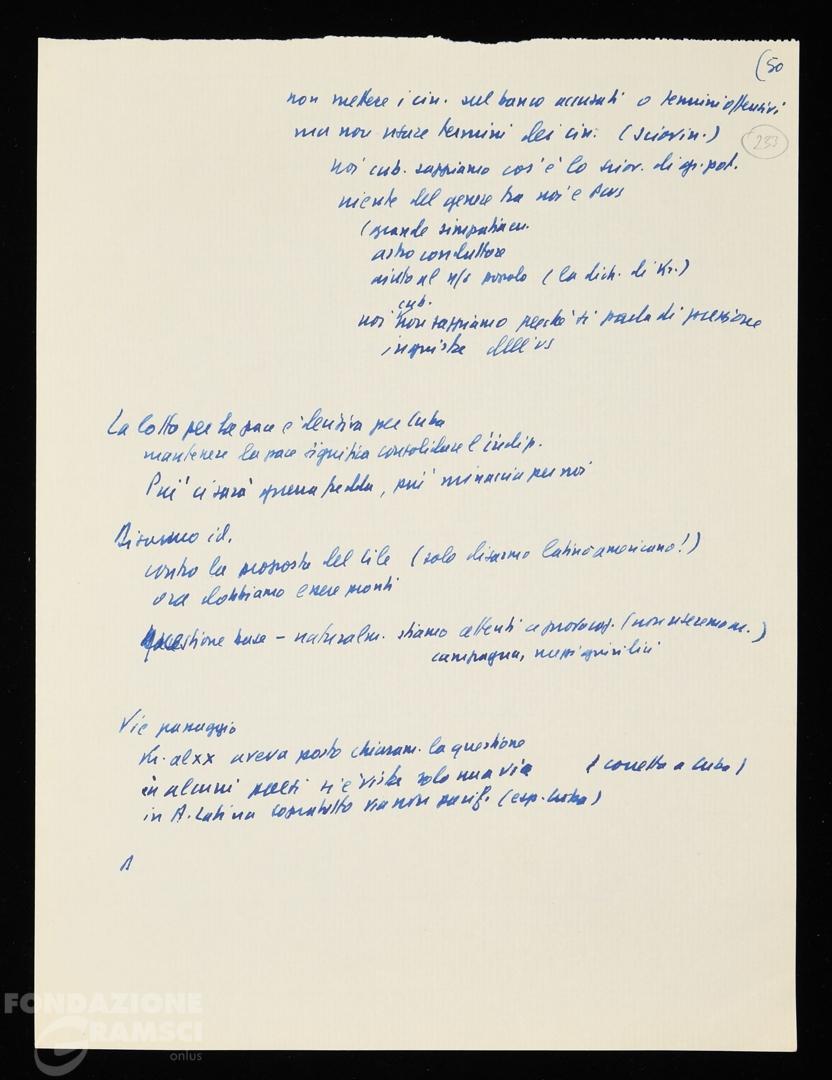 (50
non mettere i cin. sul banco accusati o termini offensivi
ma non usare termini dei cin. (sciovin.)
233
noi cub. sappiamo cos'è lo sciov. di gr. pot.
niente del genere tra noi e Pcus
(grande simpatia cu.
astro conduttore
aiuto al n/s popolo (la dich. di Kr.)
cub.
noi non sappiamo perché si parla di pressione
ingiusta dell'us
La lotta per la pace è decisiva per Cuba
mantenere la pace significa consolidare l'indip.
Più ci sarà guerra fredda, più minaccia per noi
Disarmo id.
contro la proposta del Cile (solo disarmo latinoamericano!)
ora dobbiamo essere pronti
questione base - naturalm. stiamo attenti a provocaz. (non useremo m.)
campagna, mezzi
Vie passaggio
Kr. al xx aveva posto chiaram. la questione
in alcuni paesi si è vista solo una via (corretta a Cuba)
in A. Latina soprattutto via non pacif. (esp. Cuba)
FONDAZIONE
GRAMSCI
onlus